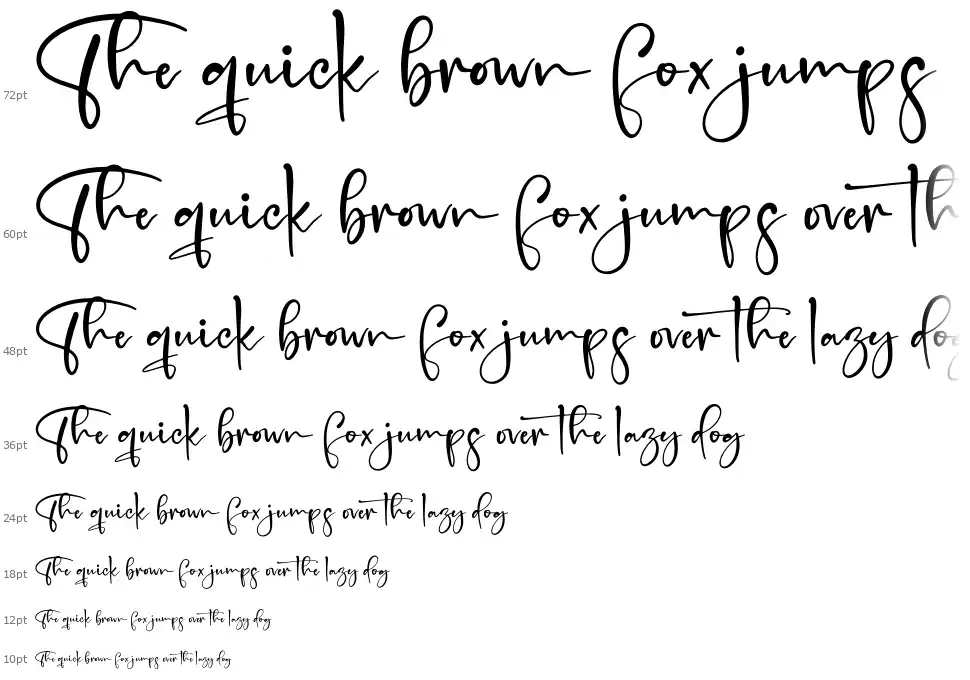 72pt The quick brown fox jumps
60pt The quick brown fox jumps over th
48pt The quick brown fox jumps over the lazy dog
36pt The quick brown fox jumps over the lazy dog
24pt The quick brown fox jumps over the lazy dog
18pt The quick brown fox jumps over the lazy dog
12pt The quick brown fox jumps over the lazy dog
10pt The quick brown fox jumps over the lazy dog